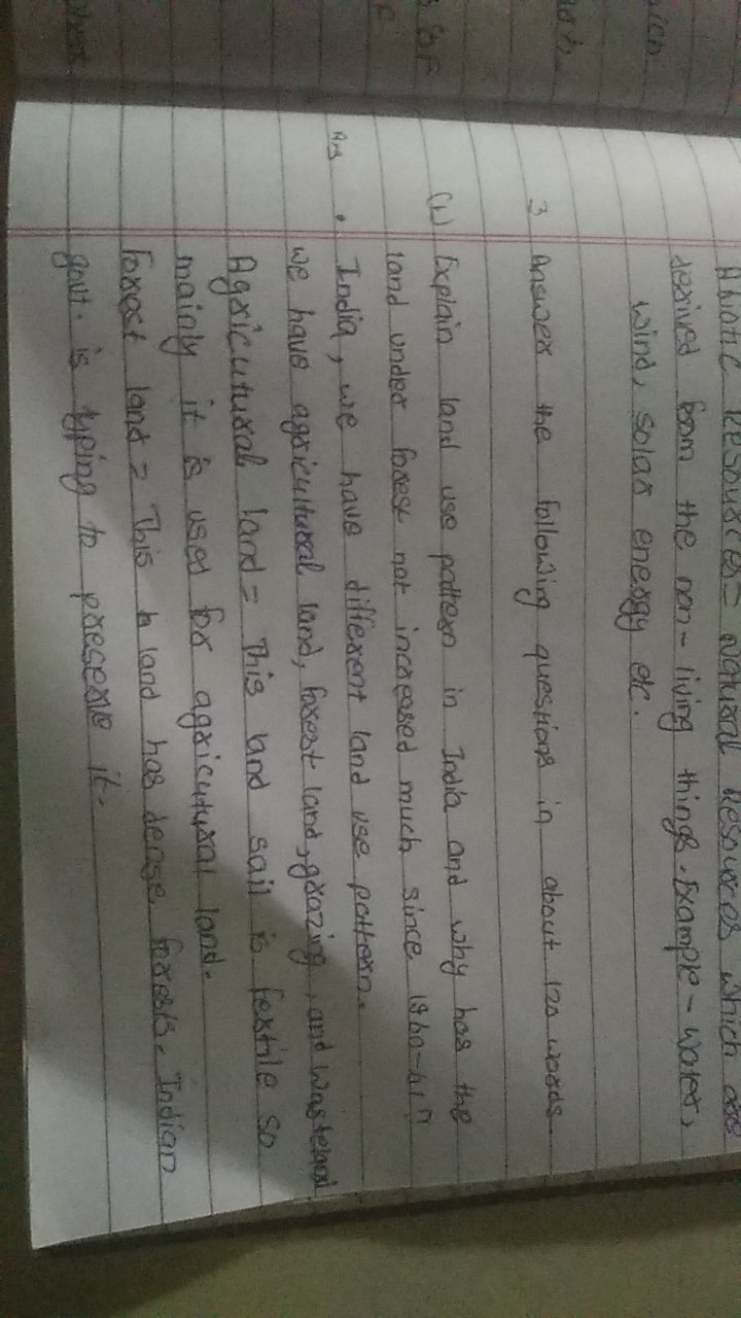 Abiotic Resources = Natural Resources which are
derived from the non-living things. Example - water,
wind, solar energy etc.
3 Answer the following questions in about 120 words
(i) Explain land use pattern in India and why has the
land under forest not increased much since 1960-61?
Ans • India, we have different land use pattern.
we have agricultural land, forest land, grazing, and wasteland
Agricutural land = This land sail is fertile so
mainly it is used for agricutural land.
Forest land = This land has dense forests. Indian
gout. is typing to preserve it.